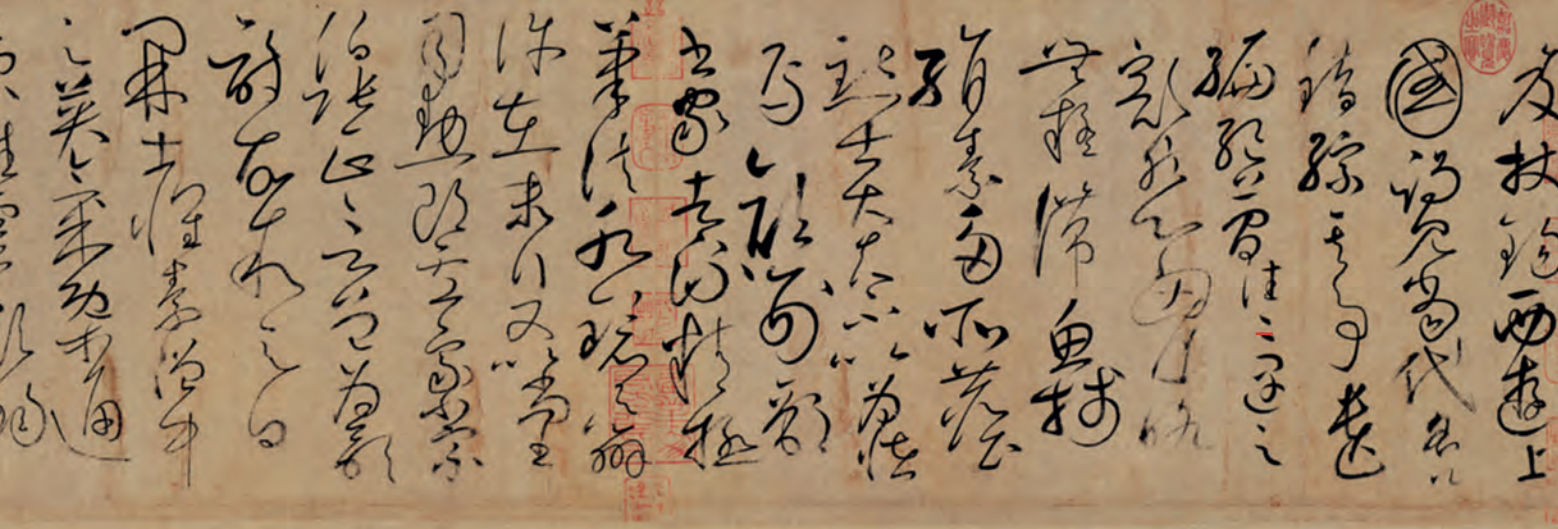 笈杖錫西遊上
國謁見當代名公
錯綜其事遺
編絕簡往往遇之
豁然心胸略
無疑滯魚牋
絹素多所塵
點士大夫不以為怪
焉顏刑部
書家者流精極
筆法水鏡之辨
許在末行又以尚書
司勳郎盧象小宗
伯張正言曾為歌
詩故敘之曰
開士懷素僧中
之英氣概通
疏性靈豁暢